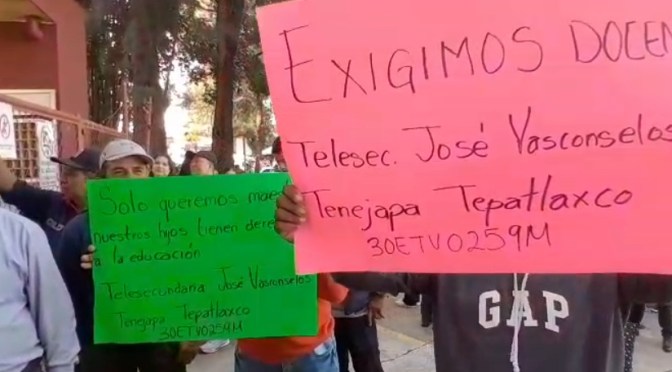 EXIGIMOS DOCEN
Telesec. José Vasconselos
Tenejapa Tepatlaxco
30ETV0259M
Solo queremos mae
nuestros hijos tienen dere
a la educación
Telesecundaria José Vasconselos
Tenejapa Tepatlaxco
30ETV0259M
GAP